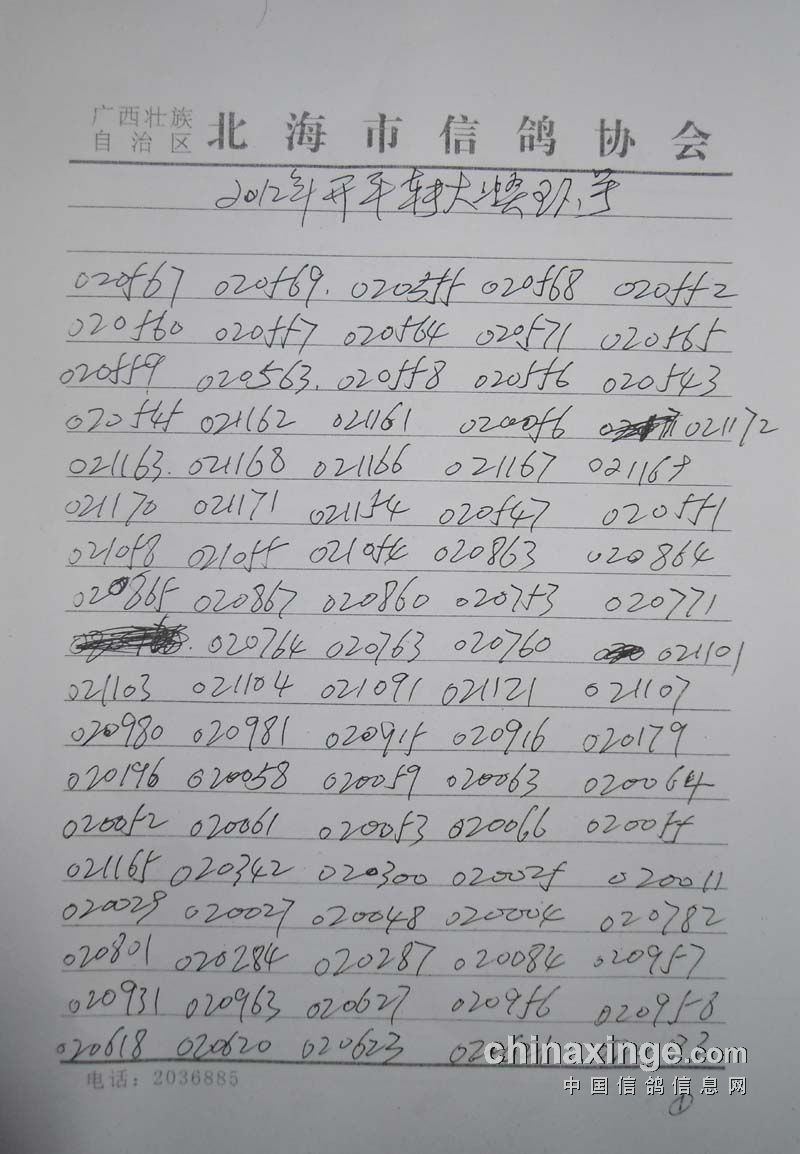 广西壮族
自治区
北海市信鸽协会
2012年开平转大奖环号
020567 020569. 020555 020568 020552
020560 020557 020564 020571 020565
020559 020563. 020558 020556 020543
020545 021162 021161 020056 021172
021163. 021168 021166 021167 021169
021170 021171 021154 020547 020551
021058 021055 021054 020863 020864
020865 020867 020860 020753 020771
020764 020763 020760 021101
021103 021104 021091 021121 021107
020980 020981 020915 020916 020179
020196 020058 020059 020063 020064
020052 020061 020053 020066 020054
021165 020342 020300 020025 020011
020029 020027 020048 020004 020782
020801 020284 020287 020084 020957
020931 020963 020627 020956 020958
020618 020620 020623
chinaxinge.com
电话：2036885
中国信鸽信息网
①